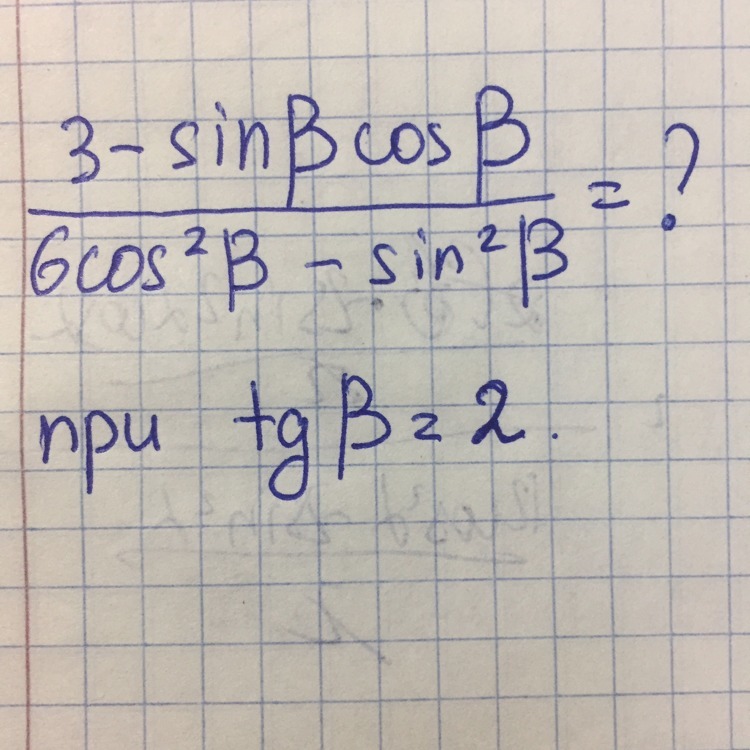 3 - sin β cos β
6cos²β - sin²β = ?
при tg β = 2.